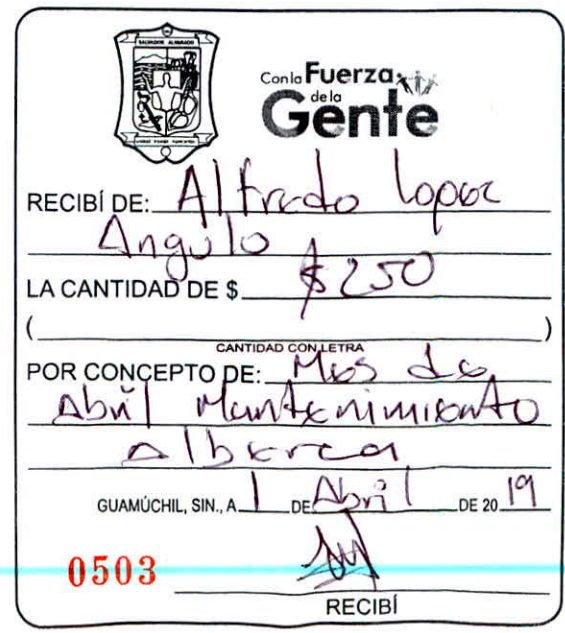 SALVADOR ALVARADO
Con la Fuerza
de la
Gente
RECIBÍ DE: Alfredo Lopez
Angulo
LA CANTIDAD DE $ $250
( )
CANTIDAD CON LETRA
POR CONCEPTO DE: Mes de
Abril Mantenimiento
Alberca
GUAMÚCHIL, SIN., A 1 DE Abril DE 20 19
0503
RECIBÍ